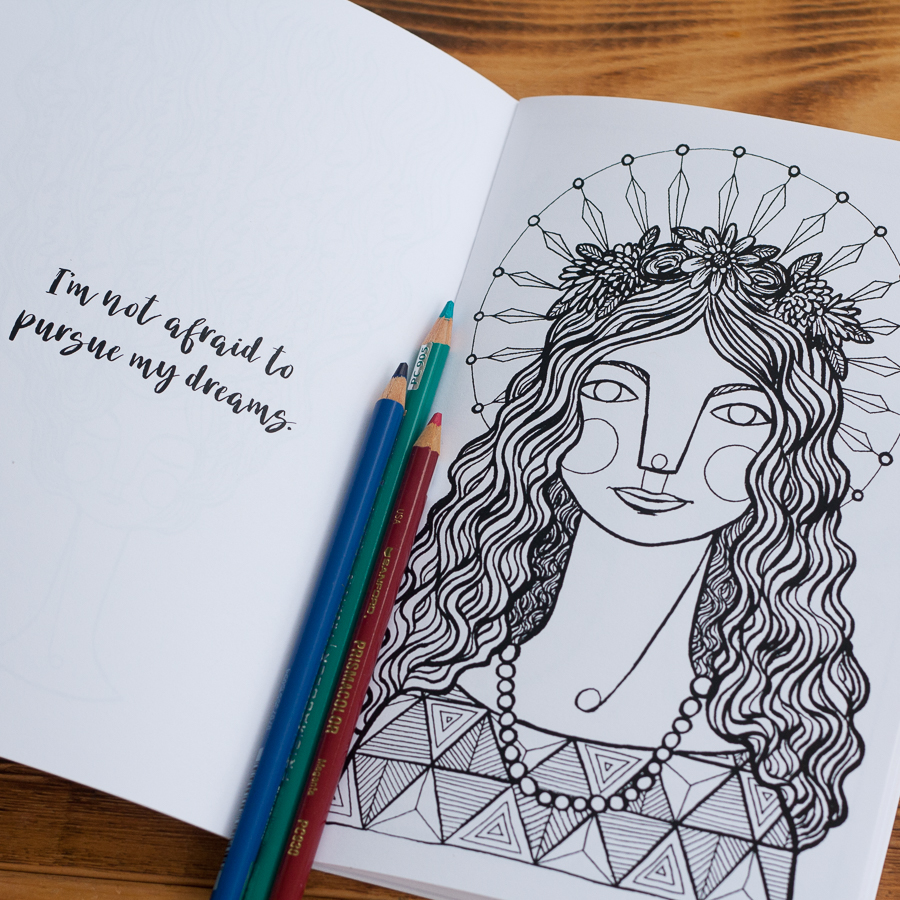 I'm not afraid to
pursue my dreams.
PC 905
USA
SANFORD.
PRISMACOLOR